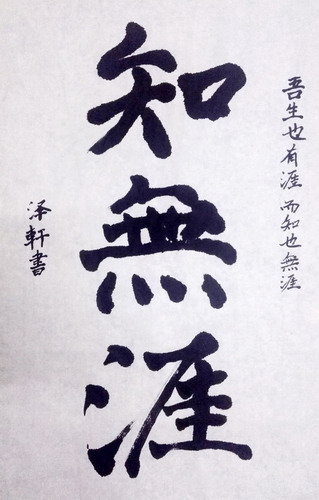 吾生也有涯而知也無涯
知無涯
泽軒書